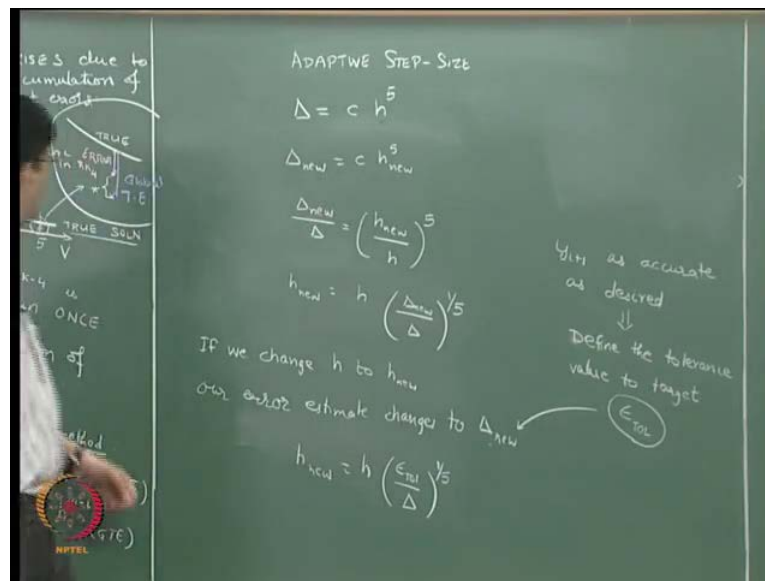 ISES due to
cumulation of
errors
TRUE
ERROR
in RK4
Global
T.E
TRUE SOLN
5 V
K-4 is
an ONCE
on of
method
(GTE)
NPTEL
ADAPTIVE STEP-SIZE
Δ = c h^5
Δ_new = c h_new^5
Δ_new / Δ = (h_new / h)^5
h_new = h (Δ_new / Δ)^1/5
If we change h to h_new
our error estimate changes to Δ_new
h_new = h (ε_TOL / Δ)^1/5
y_i+1 as accurate
as desired
⇓
Define the tolerance
value to target
ε_TOL